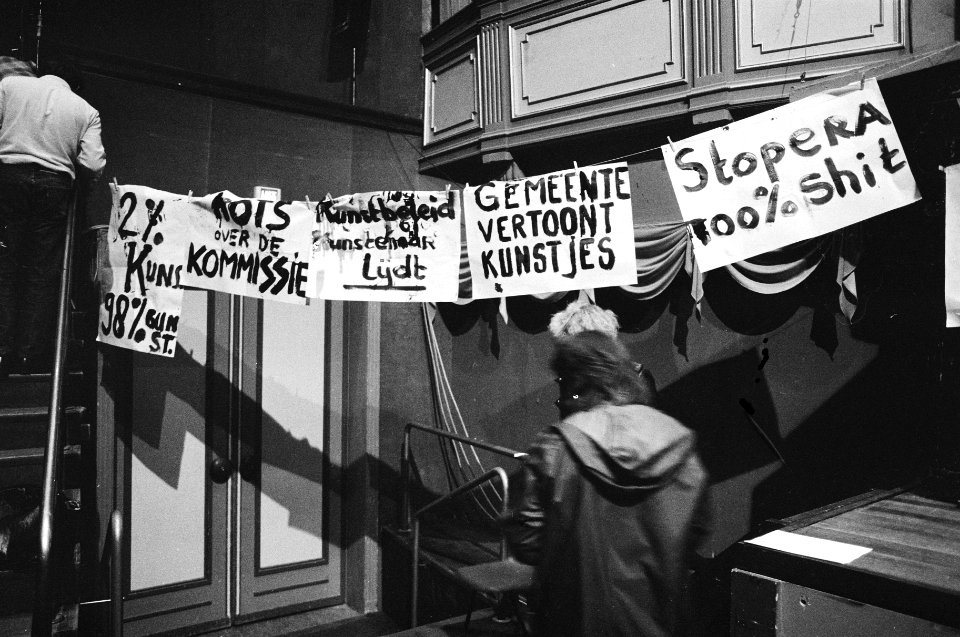 2%
KUNS
98%
GUN
ST.
OVER DE
KOMMISSIE
Kunstbeleid
of
Kunstenaar
Lijdt
GEMEENTE
VERTOONT
KUNSTJES
Stopera
100% Shit